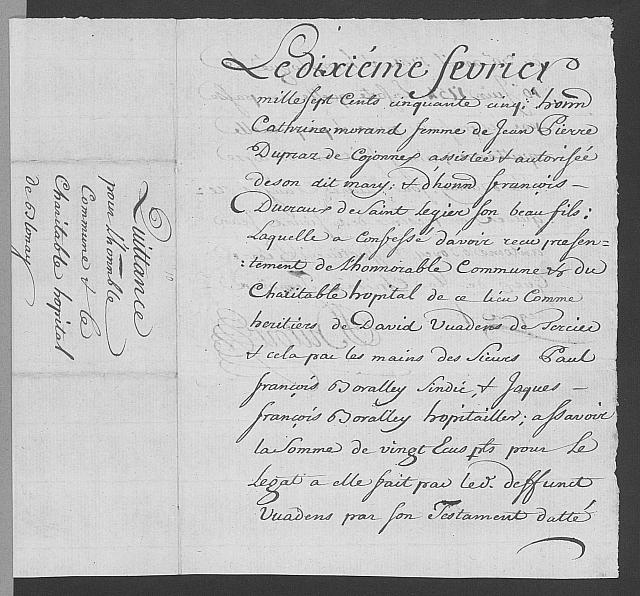 Le dixiéme fevrier
mille sept cents cinquante cinq; honn
Cathrine morand femme de Jean Pierre
Dupraz de Cojonnex assistée & autorisée
de son dit mary; & d'honn françois –
Ducraux de Saint Legier son beau fils;
Laquelle a Confessé d'avoir recu presen-
:tement de Lhonnorable Commune & du
Charitable hopital de ce lieu Comme
heritiers de David Vuadens de
& cela par les mains des Sieurs Paul
françois Boralley Sindic, & Jaques –
françois Boralley hopitailler; assavoir
la Somme de vingt Ecus pts pour le
Legat a elle fait par led. deffunct
Vuadens par son Testament datté
Quittance
pour L'honnble
Commune & le
Charitable hopital
de Blonay